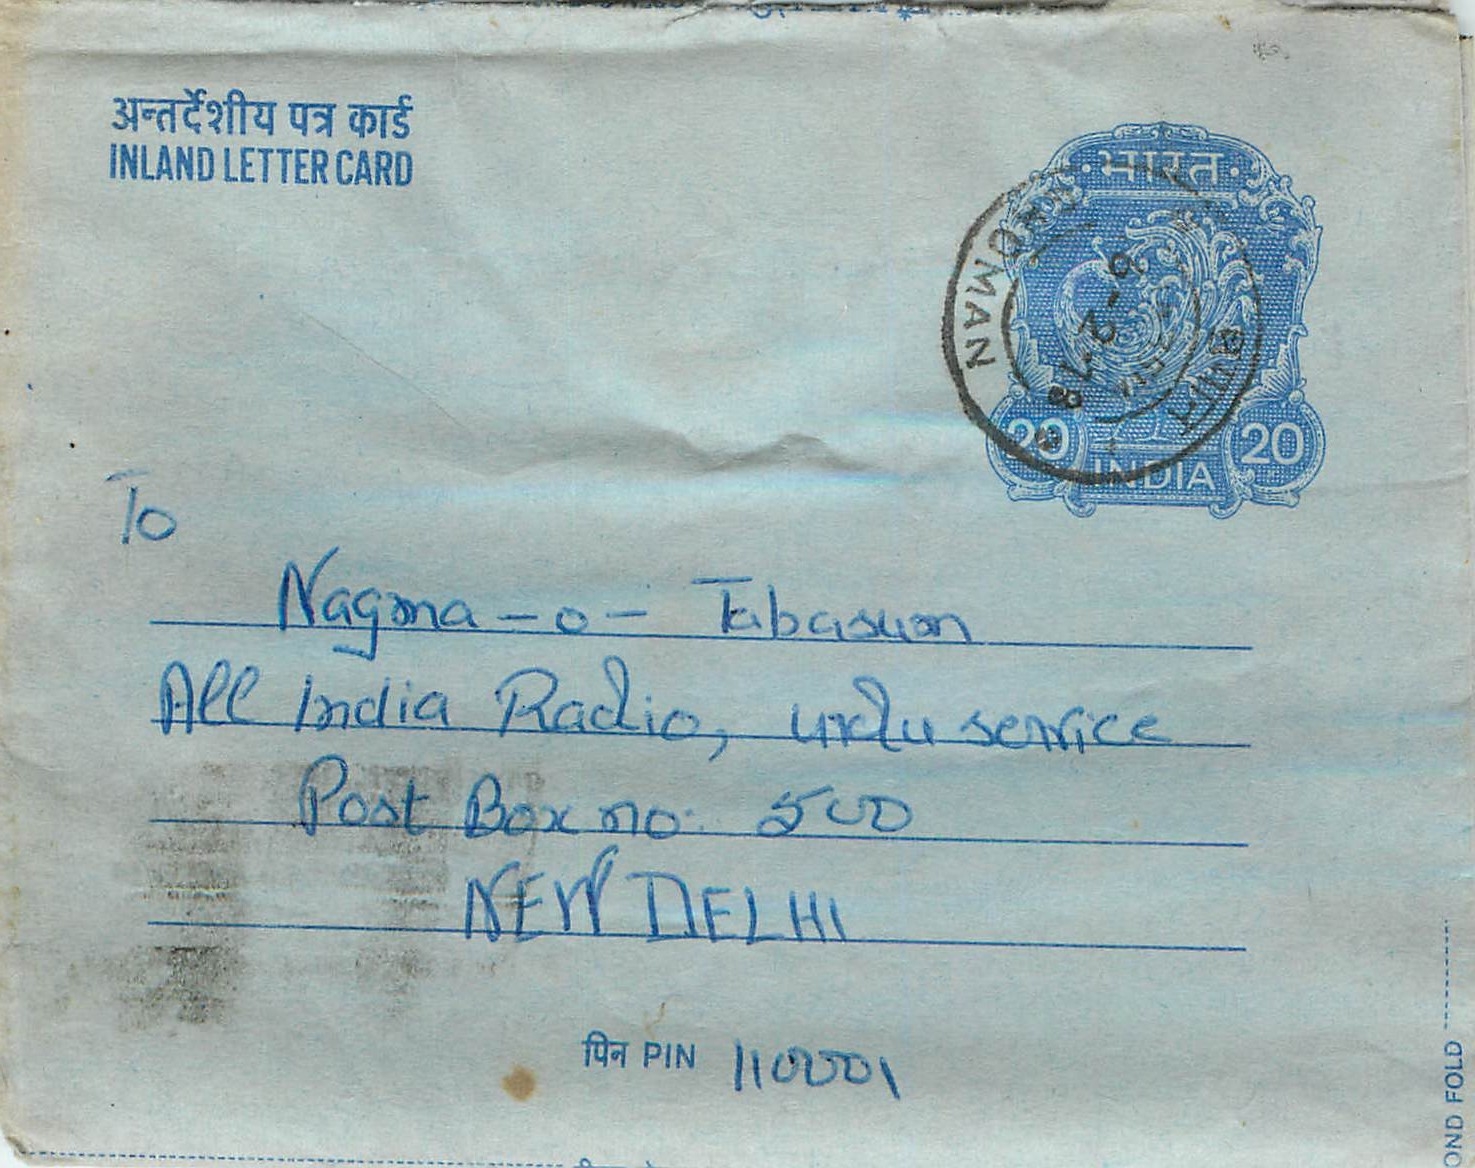 अन्तर्देशीय पत्र कार्ड
INLAND LETTER CARD
भारत
20 20
INDIA
To
Nagma - o - Tabasum
All India Radio, urdu service
Post Box no: 500
NEW DELHI
पिन PIN 110001
OND FOLD